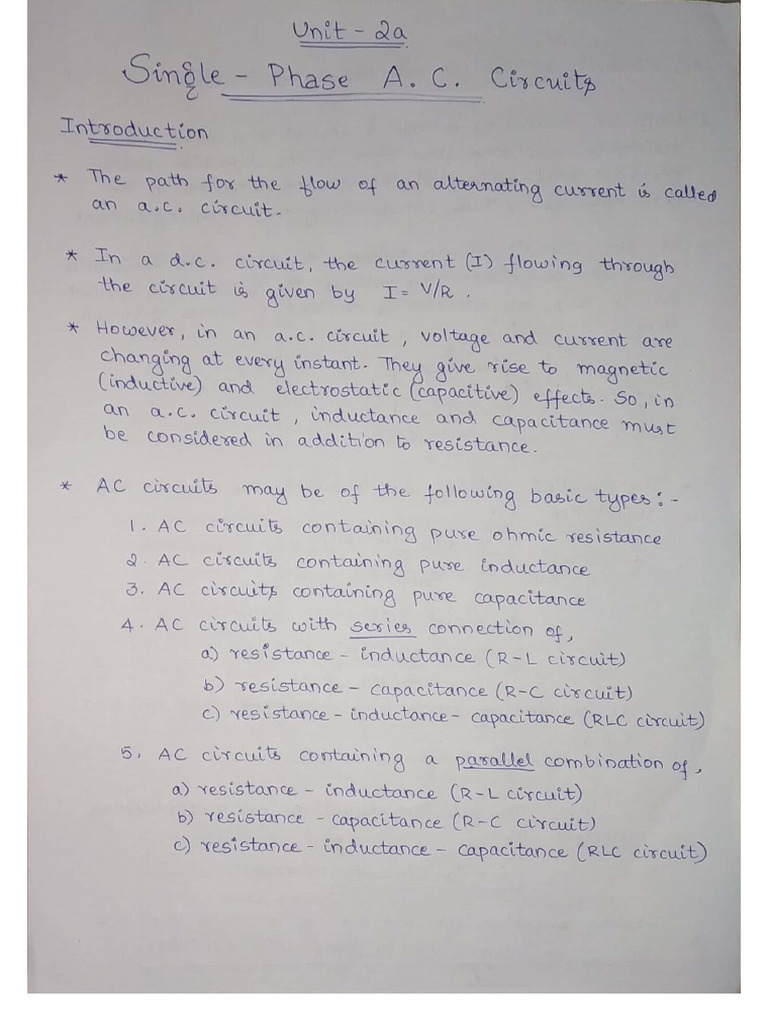 Unit - 2a
Single - Phase A. C. Circuits
Introduction
* The path for the flow of an alternating current is called
an a.c. circuit.
* In a d.c. circuit, the current (I) flowing through
the circuit is given by I = V/R.
* However, in an a.c. circuit, voltage and current are
changing at every instant. They give rise to magnetic
(inductive) and electrostatic (capacitive) effects. So, in
an a.c. circuit, inductance and capacitance must
be considered in addition to resistance.
* AC circuits may be of the following basic types:-
1. AC circuits containing pure ohmic resistance
2. AC circuits containing pure inductance
3. AC circuits containing pure capacitance
4. AC circuits with series connection of,
a) resistance - inductance (R-L circuit)
b) resistance - capacitance (R-C circuit)
c) resistance - inductance - capacitance (RLC circuit)
5. AC circuits containing a parallel combination of,
a) resistance - inductance (R-L circuit)
b) resistance - capacitance (R-C circuit)
c) resistance - inductance - capacitance (RLC circuit)